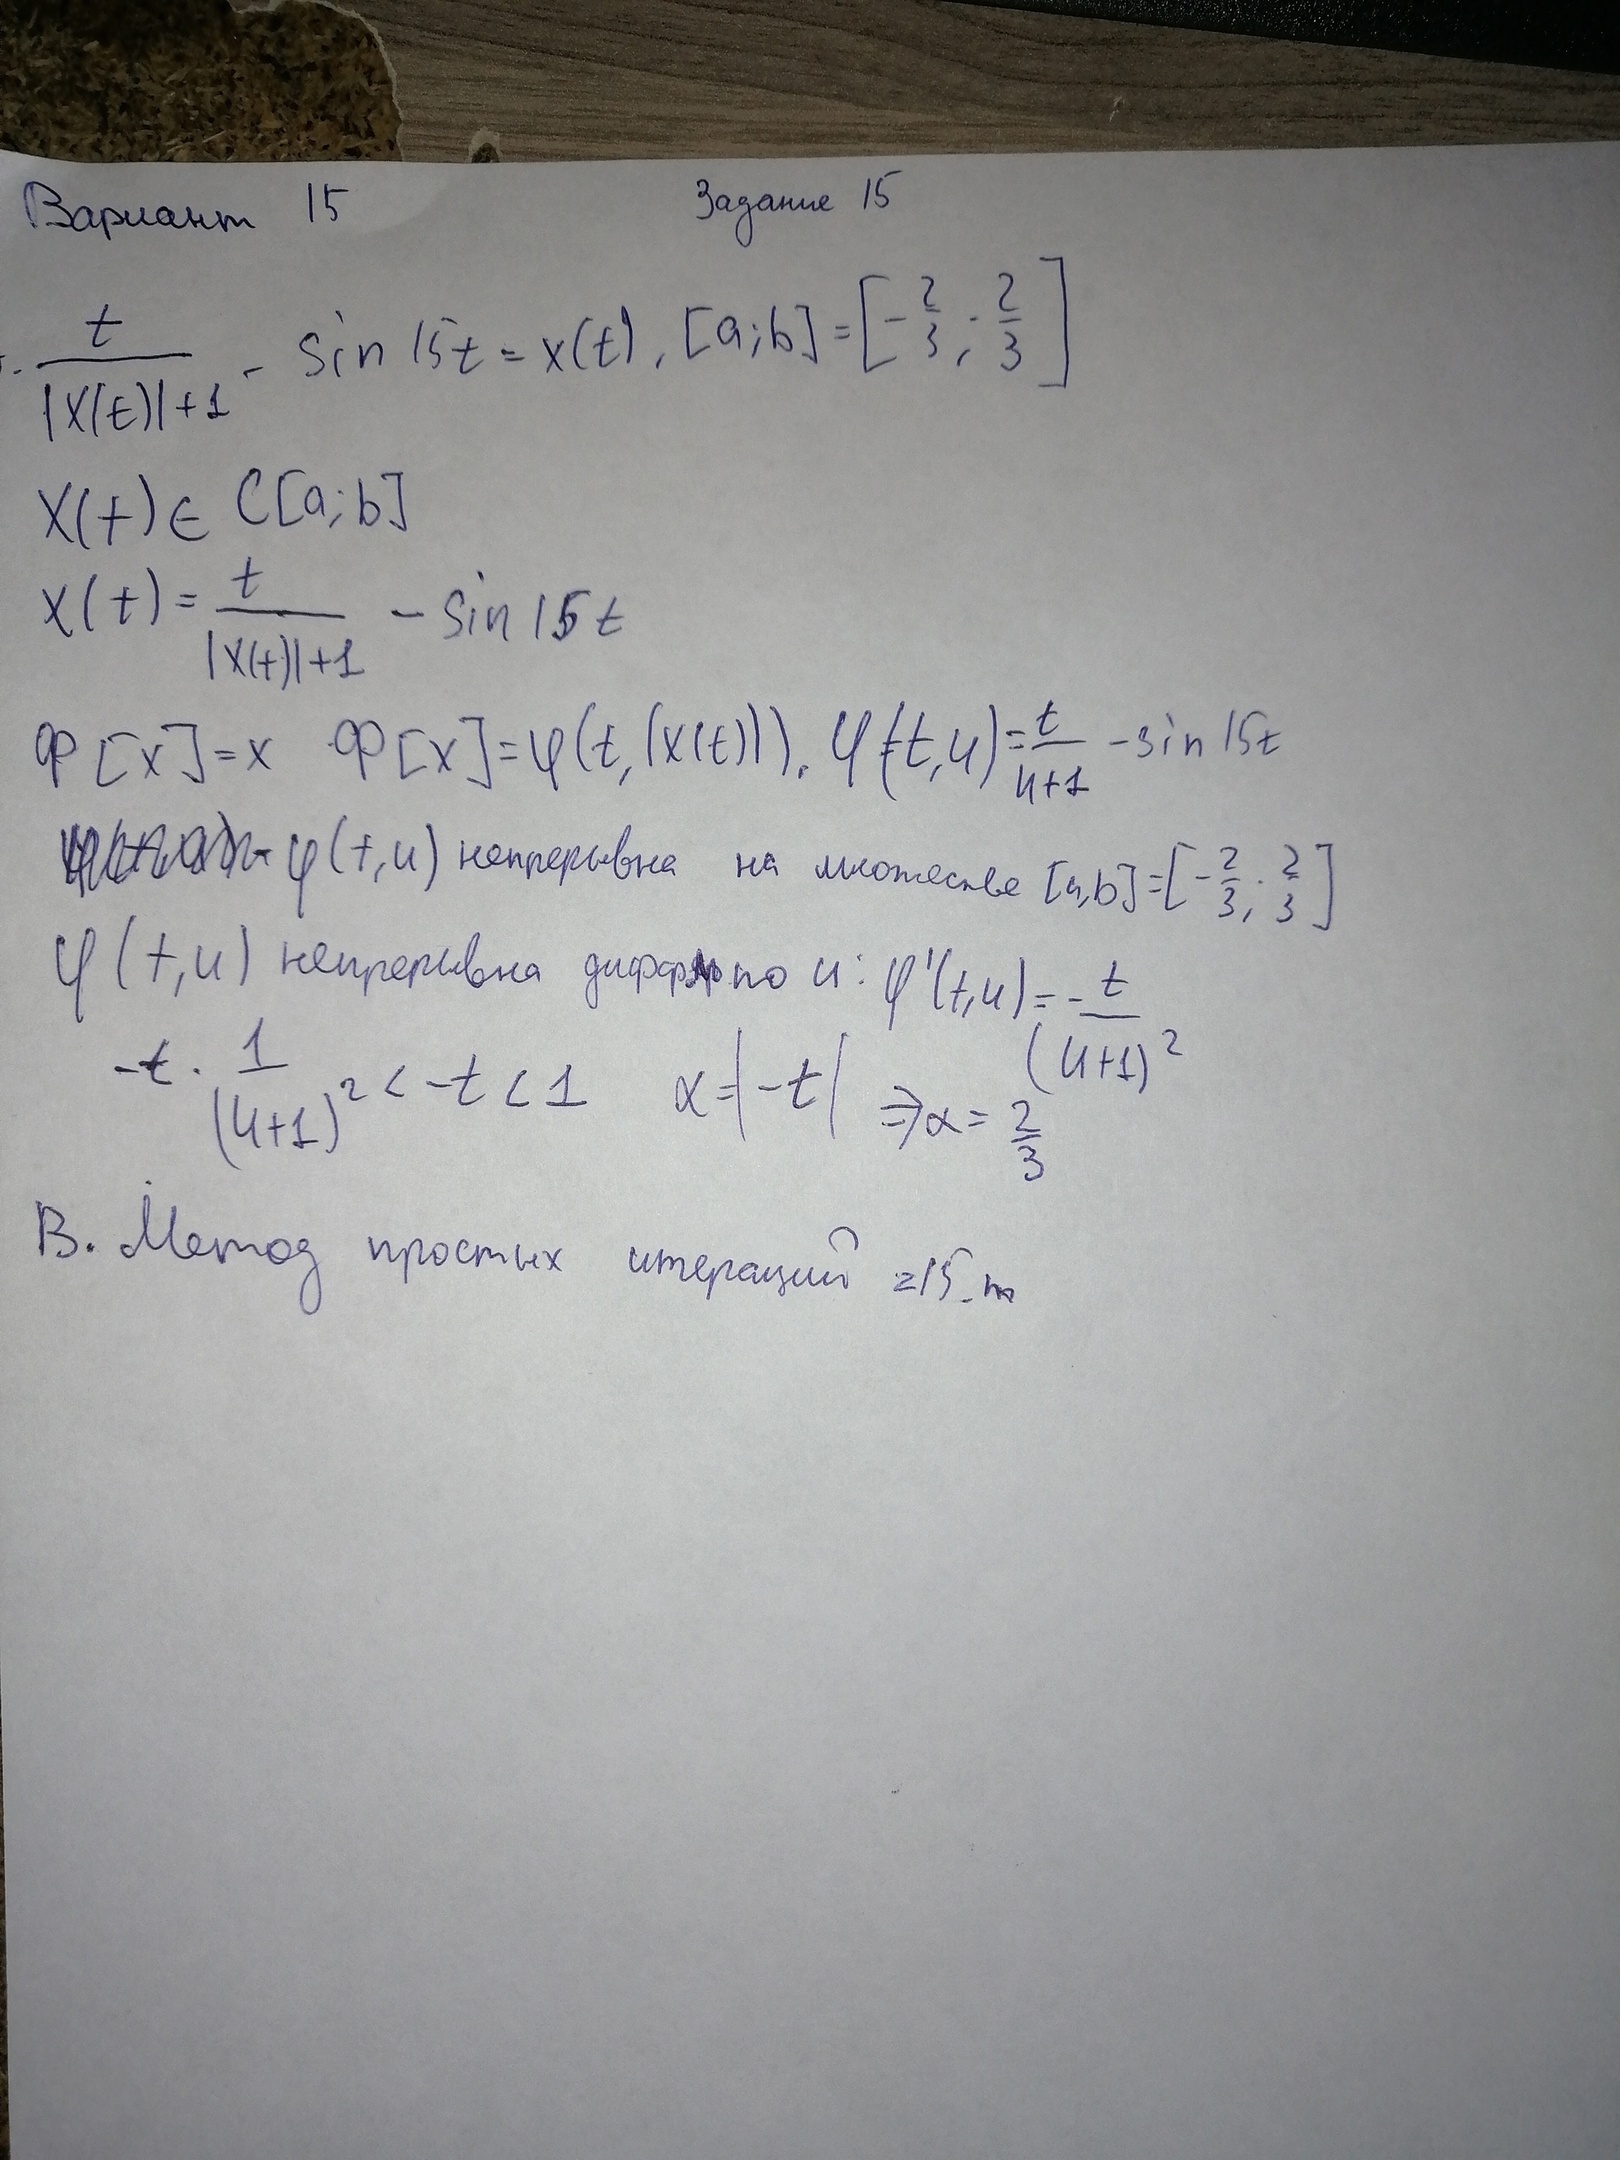 Вариант 15 Задание 15
t/(|x(t)|+1) - sin 15t = x(t), [a;b] = [-2/3; 2/3]
x(t) ∈ C[a;b]
x(t) = t/(|x(t)|+1) - sin 15t
Ф[x]=x Ф[x]=φ(t,|x(t)|). φ(t,u)=t/(u+1) - sin 15t
φ(t,u) непрерывна на множестве [a,b]=[-2/3; 2/3]
φ(t,u) непрерывна дифф по u: φ'(t,u) = -t/(u+1)²
-t · 1/(u+1)² < -t < 1 α=|-t| ⇒ α = 2/3
В. Метод простых итераций z15.m